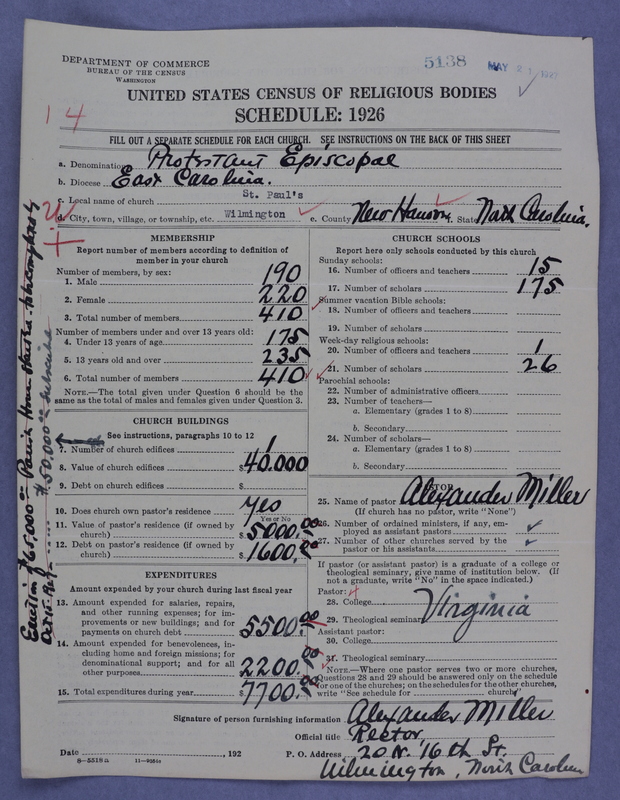 DEPARTMENT OF COMMERCE
BUREAU OF THE CENSUS
WASHINGTON
5138 MAY 21 1927
UNITED STATES CENSUS OF RELIGIOUS BODIES
SCHEDULE: 1926
14
FILL OUT A SEPARATE SCHEDULE FOR EACH CHURCH. SEE INSTRUCTIONS ON THE BACK OF THIS SHEET
a. Denomination Protestant Episcopal
b. Diocese East Carolina.
c. Local name of church St. Paul's
d. City, town, village, or township, etc. Wilmington e. County New Hanover f. State North Carolina.
MEMBERSHIP
Report number of members according to definition of
member in your church
Number of members, by sex:
1. Male 190
2. Female 220
3. Total number of members 410
Number of members under and over 13 years old:
4. Under 13 years of age 175
5. 13 years old and over 235
6. Total number of members 410
NOTE.—The total given under Question 6 should be
the same as the total of males and females given under Question 3.
CHURCH BUILDINGS
See instructions, paragraphs 10 to 12
7. Number of church edifices 1
8. Value of church edifices $40.000
9. Debt on church edifices $
10. Does church own pastor's residence? yes
Yes or No
11. Value of pastor's residence (if owned by
church) $5000.00
12. Debt on pastor's residence (if owned by
church) $1600.00
EXPENDITURES
Amount expended by your church during last fiscal year
13. Amount expended for salaries, repairs,
and other running expenses; for im-
provements or new buildings; and for
payments on church debt $5500.00
14. Amount expended for benevolences, in-
cluding home and foreign missions; for
denominational support; and for all
other purposes $2200.00
15. Total expenditures during year $7700.00
CHURCH SCHOOLS
Report here only schools conducted by this church
Sunday schools:
16. Number of officers and teachers 15
17. Number of scholars 175
Summer vacation Bible schools:
18. Number of officers and teachers
19. Number of scholars
Week-day religious schools:
20. Number of officers and teachers 1
21. Number of scholars 26
Parochial schools:
22. Number of administrative officers
23. Number of teachers—
a. Elementary (grades 1 to 8)
b. Secondary
24. Number of scholars—
a. Elementary (grades 1 to 8)
b. Secondary
PASTOR
25. Name of pastor Alexander Miller
(If church has no pastor, write "None")
26. Number of ordained ministers, if any, em-
ployed as assistant pastors
27. Number of other churches served by the
pastor or his assistants
If pastor (or assistant pastor) is a graduate of a college or
theological seminary, give name of institution below. (If
not a graduate, write "No" in the space indicated.)
Pastor:
28. College
29. Theological seminary Virginia
Assistant pastor:
30. College
31. Theological seminary
NOTE.—Where one pastor serves two or more churches,
Questions 28 and 29 should be answered only on the schedule
for one of the churches; on the schedules for the other churches,
write "See schedule for church"
Signature of person furnishing information Alexander Miller
Official title Rector
Date , 192 P. O. Address 20 N. 16th St.
8-5518a Wilmington, North Carolina
Parish House
$50.000 subscribed